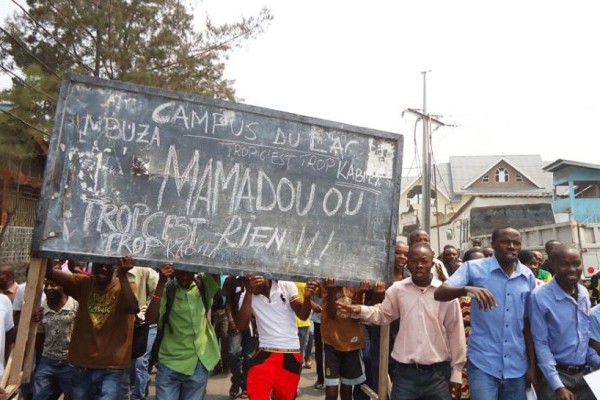 CAMPUS DU LAC
MBUZA
TROP C'EST TROP KABILA
MAMADOU OU
RIEN !!!
TROP C'EST
TROP